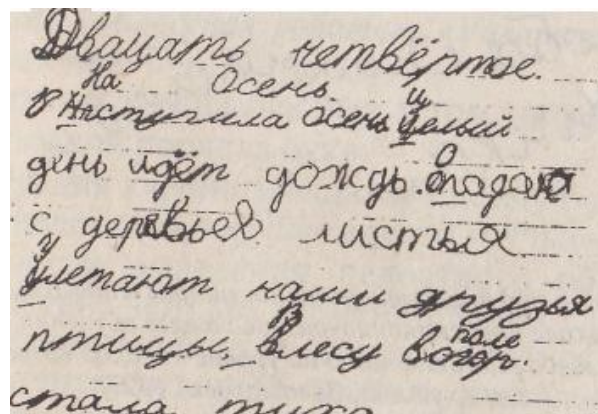 Двацать четвёртое.
На Осень ц
Наступила осень целый
день идёт дождь. опадают
с деревьев листья
у
улетают наши друзья
в поле
птицы, влесу вогор.
стала тихо